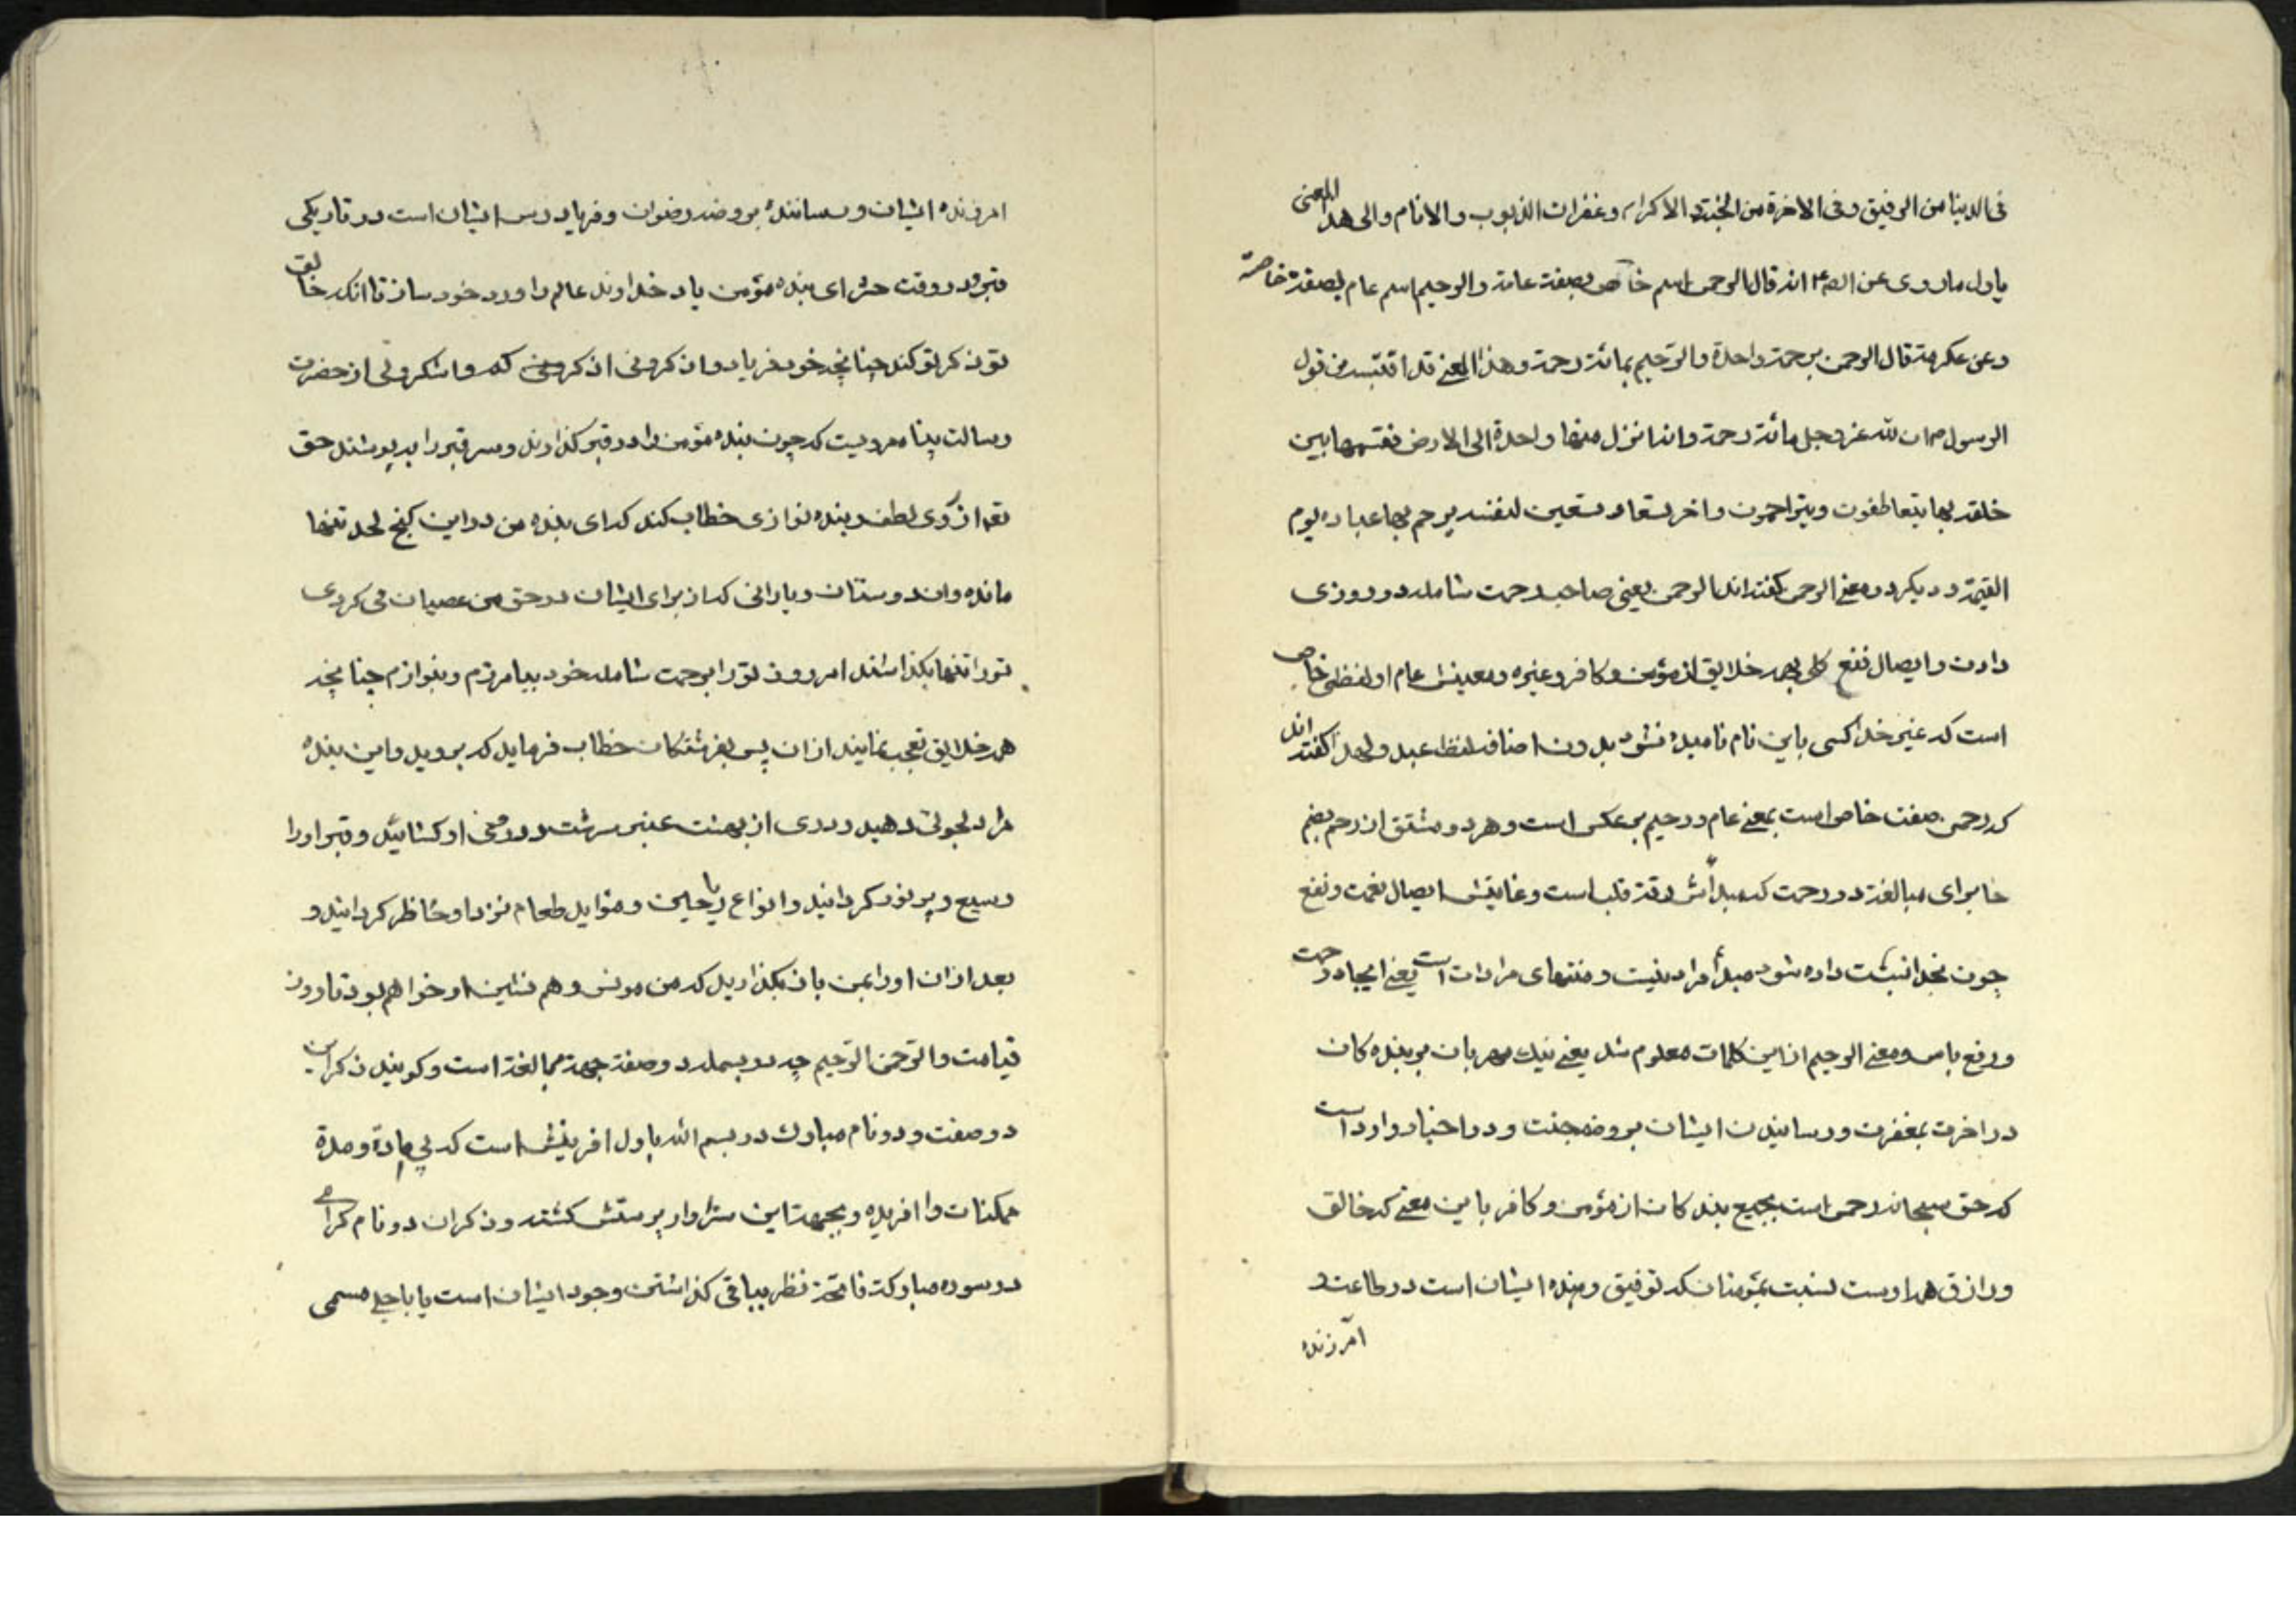 فی الدنیا من الرفیق و فی الاخرة من الجنة و الاکرام و غفران الذنوب و الاثام و الی هذا المعنی
یاول ما روی عن الص۴ انه قال الرحمن اسم خاص بصفة عامة و الرحیم اسم عام بصفة خاصة
و عن عکرمة قال الرحمن برحمة واحدة و الرحیم بمائة رحمة و هذا المعنی قد اقتبسه من قول
الرسول ص ان لله عز و جل مائة رحمة و انه انزل منها واحدة الی الارض فقسمها بین
خلقه بها یتعاطفون و یتراحمون و اخر تسعا و تسعین لنفسه یرحم بها عباده یوم
القیمة و دیکر در معنی الرحمن کفته اند الرحمن یعنی صاحب رحمت شامله در روزی
دادن و ایصال نفع کلی بهمه خلایق از مؤمن و کافر و غیره و معنیش عام و لفظش خاص
است که غیر خدا کسی باین نام نامیده نشود بدون اضافه لفظ عبد و لهذا کفته اند
که رحمن صفت خاص است بمعنی عام و رحیم برعکس است و هر دو مشتق از رحم بضم
خا برای مبالغه در رحمت که مبدأش رقة قلب است و غایتش ایصال نعمت و نفع
چون بخدا نسبت داده شود مبدأ مراد نیست و منتهای مراد است یعنی ایجاد رحمت
و رفع باس و معنی الرحیم از این کلمات معلوم شد یعنی نیك مهربان بر بنده کان
در اخرت بمغفرت و رسانیدن ایشان بروضه جنت و در اخبار وارد است
که حق سبحانه رحمن است بجمیع بندکان از مؤمن و کافر باین معنی که خالق
و رازق همه اوست نسبت بمؤمنان که توفیق دهنده ایشان است در طاعت و
آمرزنده
امرزنده ایشان و رساننده بروضه رضوان و فریاد رس ایشان است در تاریکی
قبر و در وقت حشر ای بنده مؤمن یاد خداوند عالم را ورد خود ساز تا انکه خالق
تو ذکر تو کند چنانچه خود فریاد و اذکرونی اذکرکم و اشکرولی از حضرت
رسالت پناه مرویست که چون بنده مؤمن را در قبر کذارند و سر قبر را بپوشند حق
تعه از روی لطف و بنده نوازی خطاب کند که ای بنده من در این کنج لحد تنها
مانده و ان دوستان و یارانی که از برای ایشان در حق من عصیان می کردی
تو را تنها بکذاشتند امروز تو را برحمت شامله خود بیامرزم و بنوازم چنانچه
همه خلایق تعجب نمایند از ان پس بفرشتکان خطاب فرماید که بروید و این بنده
مرا دلجوئی دهید و دری از بهشت عنبر سرشت در روی او کشائید و قبر او را
وسیع و پر نور کردانید و انواع ریاحین و موائد طعام نزد او حاظر کردانید و
بعد از ان او را بمن باز بکذارید که من مونس و هم نشین او خواهم بود تا روز
قیامت و الرحمن الرحیم چه در بسمله دو صفة جهة مبالغة است و کویند ذکر این
دو صفت و دو نام مبارك در بسم الله باول افرینش است که بی مادة و مدة
ممکنات را افریده و بجهة این سزاوار پرستش کشته و ذکر ان دو نام کرامی
در سوره مبارکة فاتحة نظر بباقی کذاشتن وجود ایشان است یا باجل مسمی